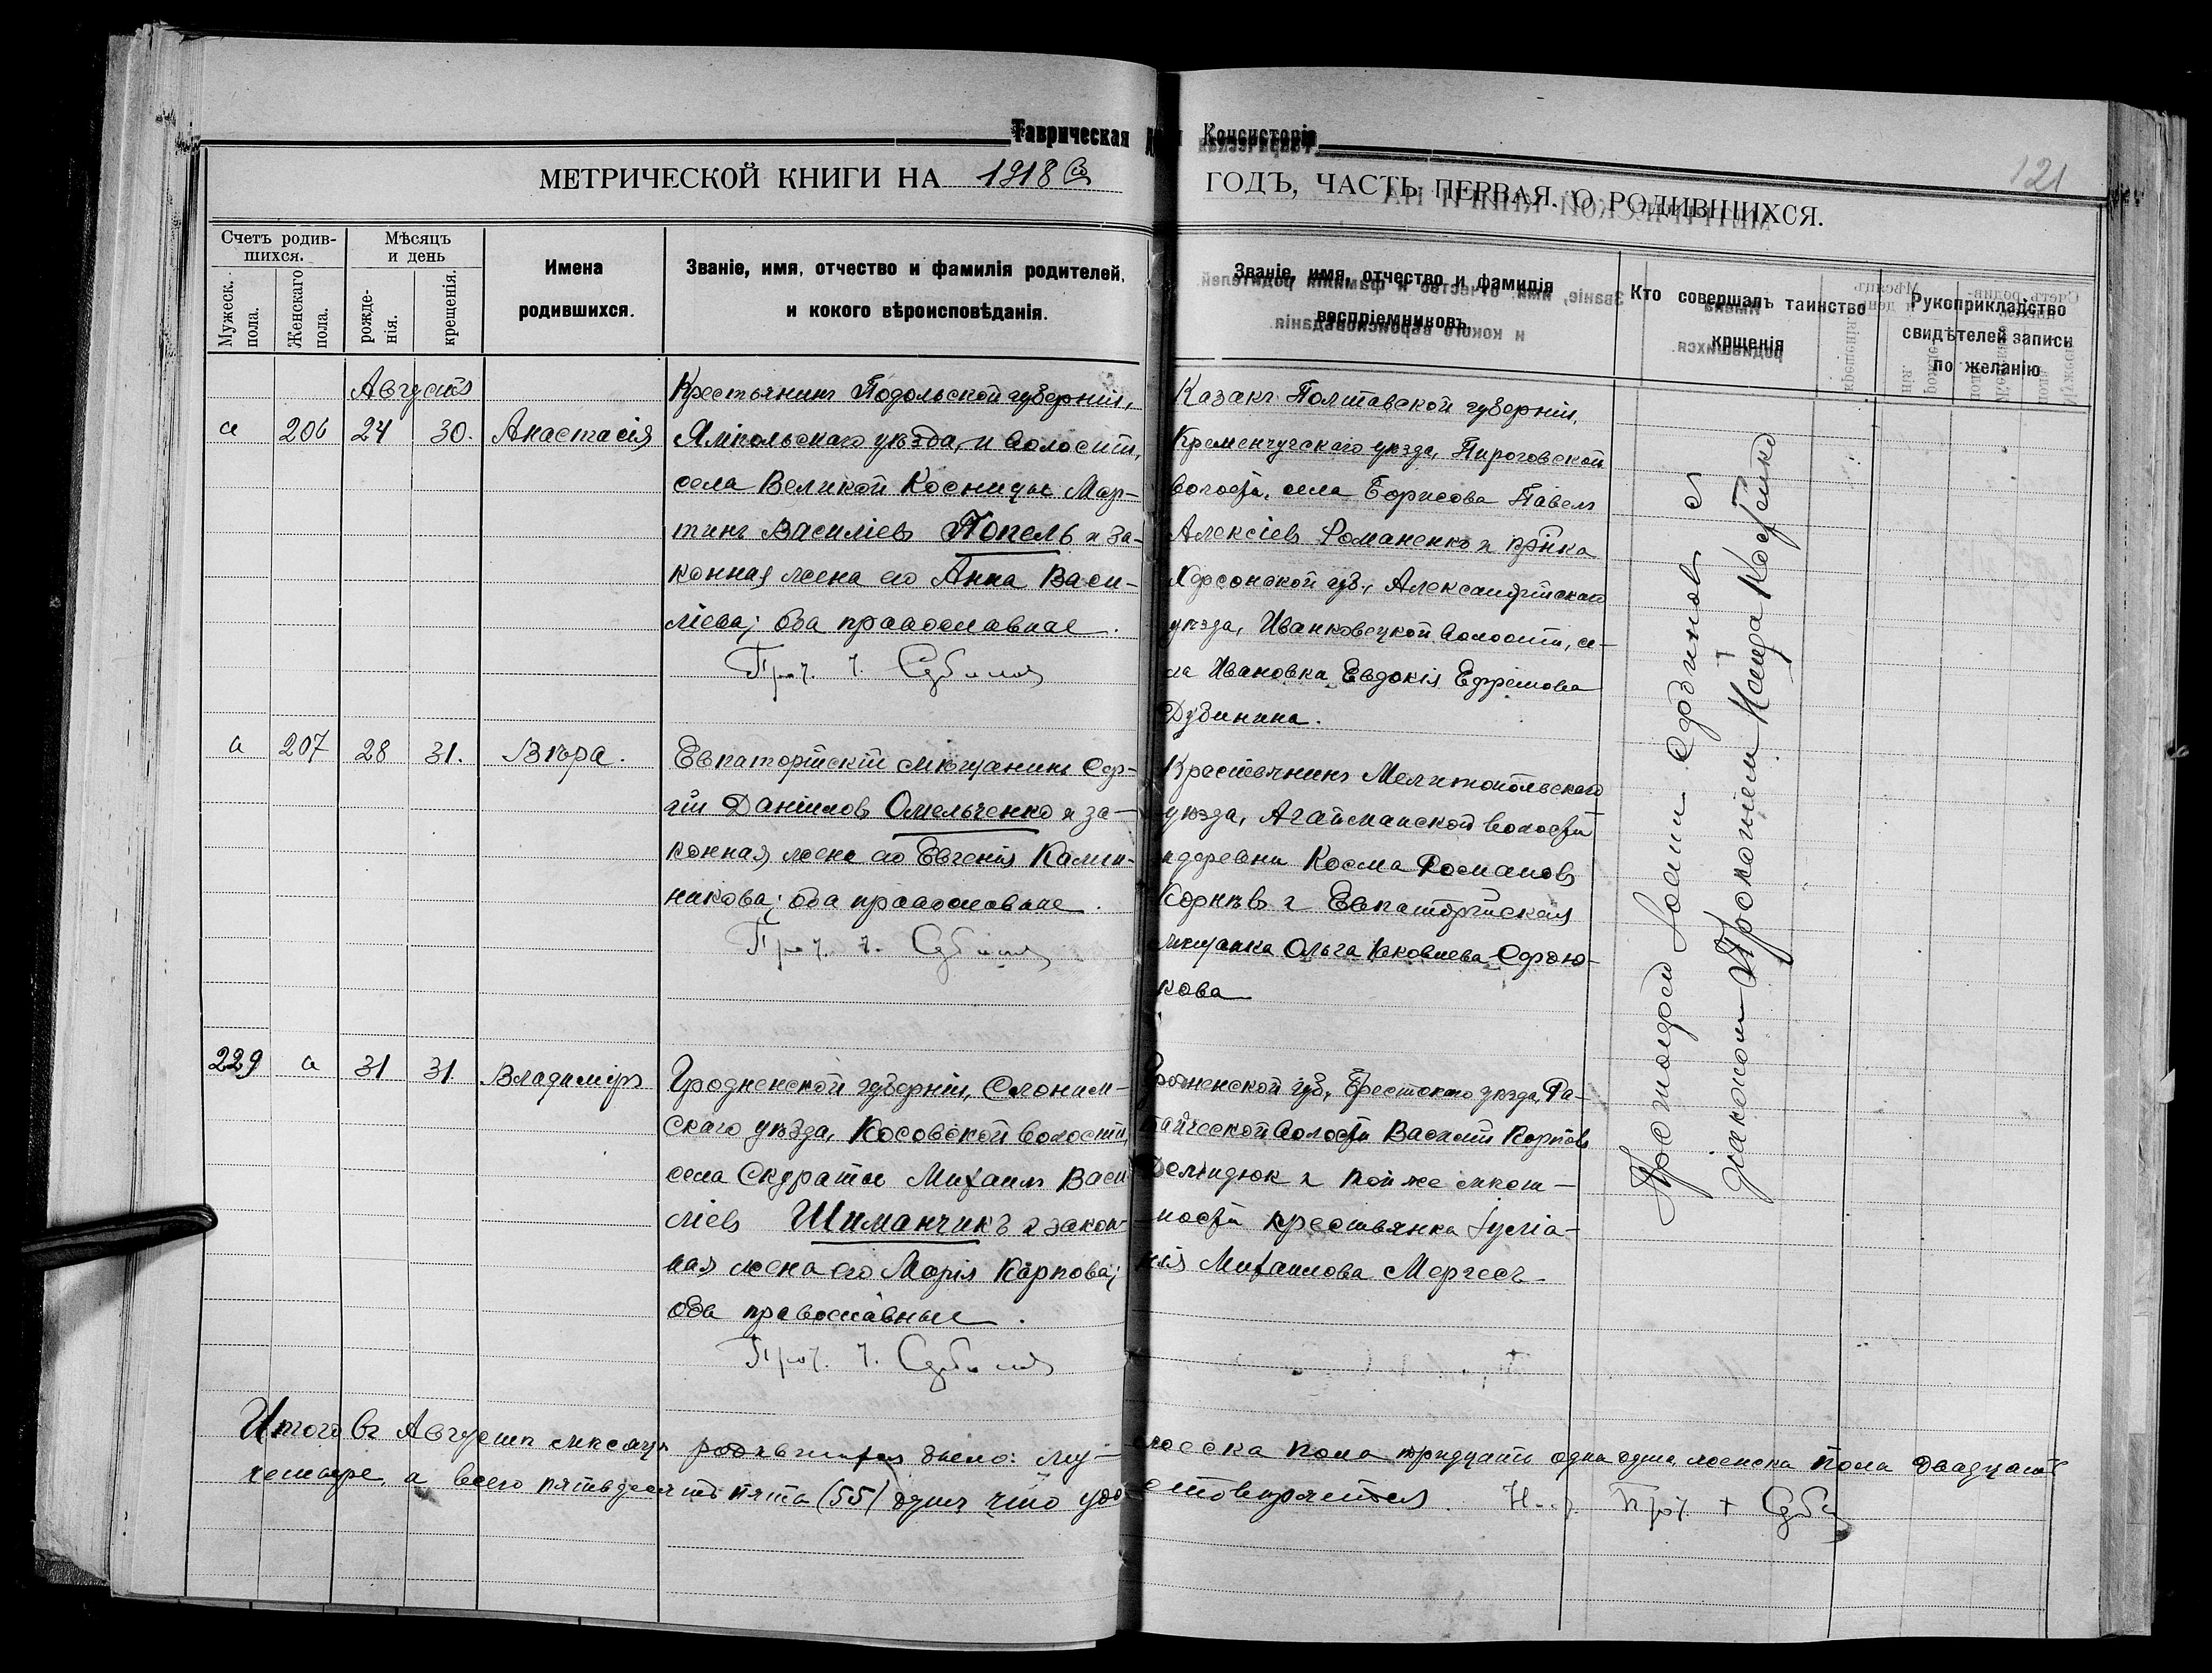 Таврическая Консисторія
121
МЕТРИЧЕСКОЙ КНИГИ НА 1918 ГОДЪ, ЧАСТЬ ПЕРВАЯ, О РОДИВШИХСЯ.
Счетъ родившихся.
Мужеск. пола.
Женскаго пола.
Мѣсяцъ и день
рожденія.
крещенія.
Имена
родившихся.
Званіе, имя, отчество и фамилія родителей,
и кокого вѣроисповѣданія.
Званіе, имя, отчество и фамилія
воспріемниковъ
Кто совершалъ таинство
крщенія
Рукоприкладство
свидѣтелей записи
по желанію
Августъ
а 206 24 30. Анастасія
Крестьянинъ Подольской губерніи,
Ямпольскаго уѣзда, и волости,
села Великой Косницы Мар-
тинъ Василіевъ Попель и за-
конная жена его Анна Васи-
ліева; оба православные.
Прот. І.
Казакъ Полтавской губерніи,
Кременчугскаго уѣзда, Пироговской
волости, села Борисова Павелъ
Алексіевъ Романенко и кр-нка
Херсонской губ., Александрійскаго
уѣзда, Иванковецкой волости, се-
ла Ивановка Евдокія Ефремова
Дубинина.
а 207 28 31. Вѣра.
Евпаторійскій мѣщанинъ Сер-
гій Даніиловъ Омельченко и за-
конная жена его Евгенія Калин-
никова; оба православные.
Прот. І.
Крестьянинъ Мелитопольскаго
уѣзда, Агайманской волости
и деревни Косма Романовъ
Корнѣвъ и Евпаторійская
мѣщанка Ольга Яковлева Сердю-
кова
229 а 31 31. Владиміръ
Гродненской губерніи, Слоним-
скаго уѣзда, Косовской волости,
села Скураты Михаилъ Васи-
ліевъ Шиманчикъ и закон-
ная жена его Марія Карпова;
оба православные.
Прот. І.
Гродненской губ., Брестскаго уѣзда, Ра-
тайческой волости Василій Карповъ
Демидюк и той же мѣст-
ности крестьянка Іуліа-
нія Михаилова Мергесъ
Протоіерей Іоаннъ Сербиновъ съ
діакономъ Прокопіемъ Костенко
Итого въ Августѣ мѣсяцѣ родившихся было: му-жеска пола тридцать одна душа женска пола двадцать
четыре, а всего пятьдесятъ пять (55) душъ что удо-стовѣряется. Прот.